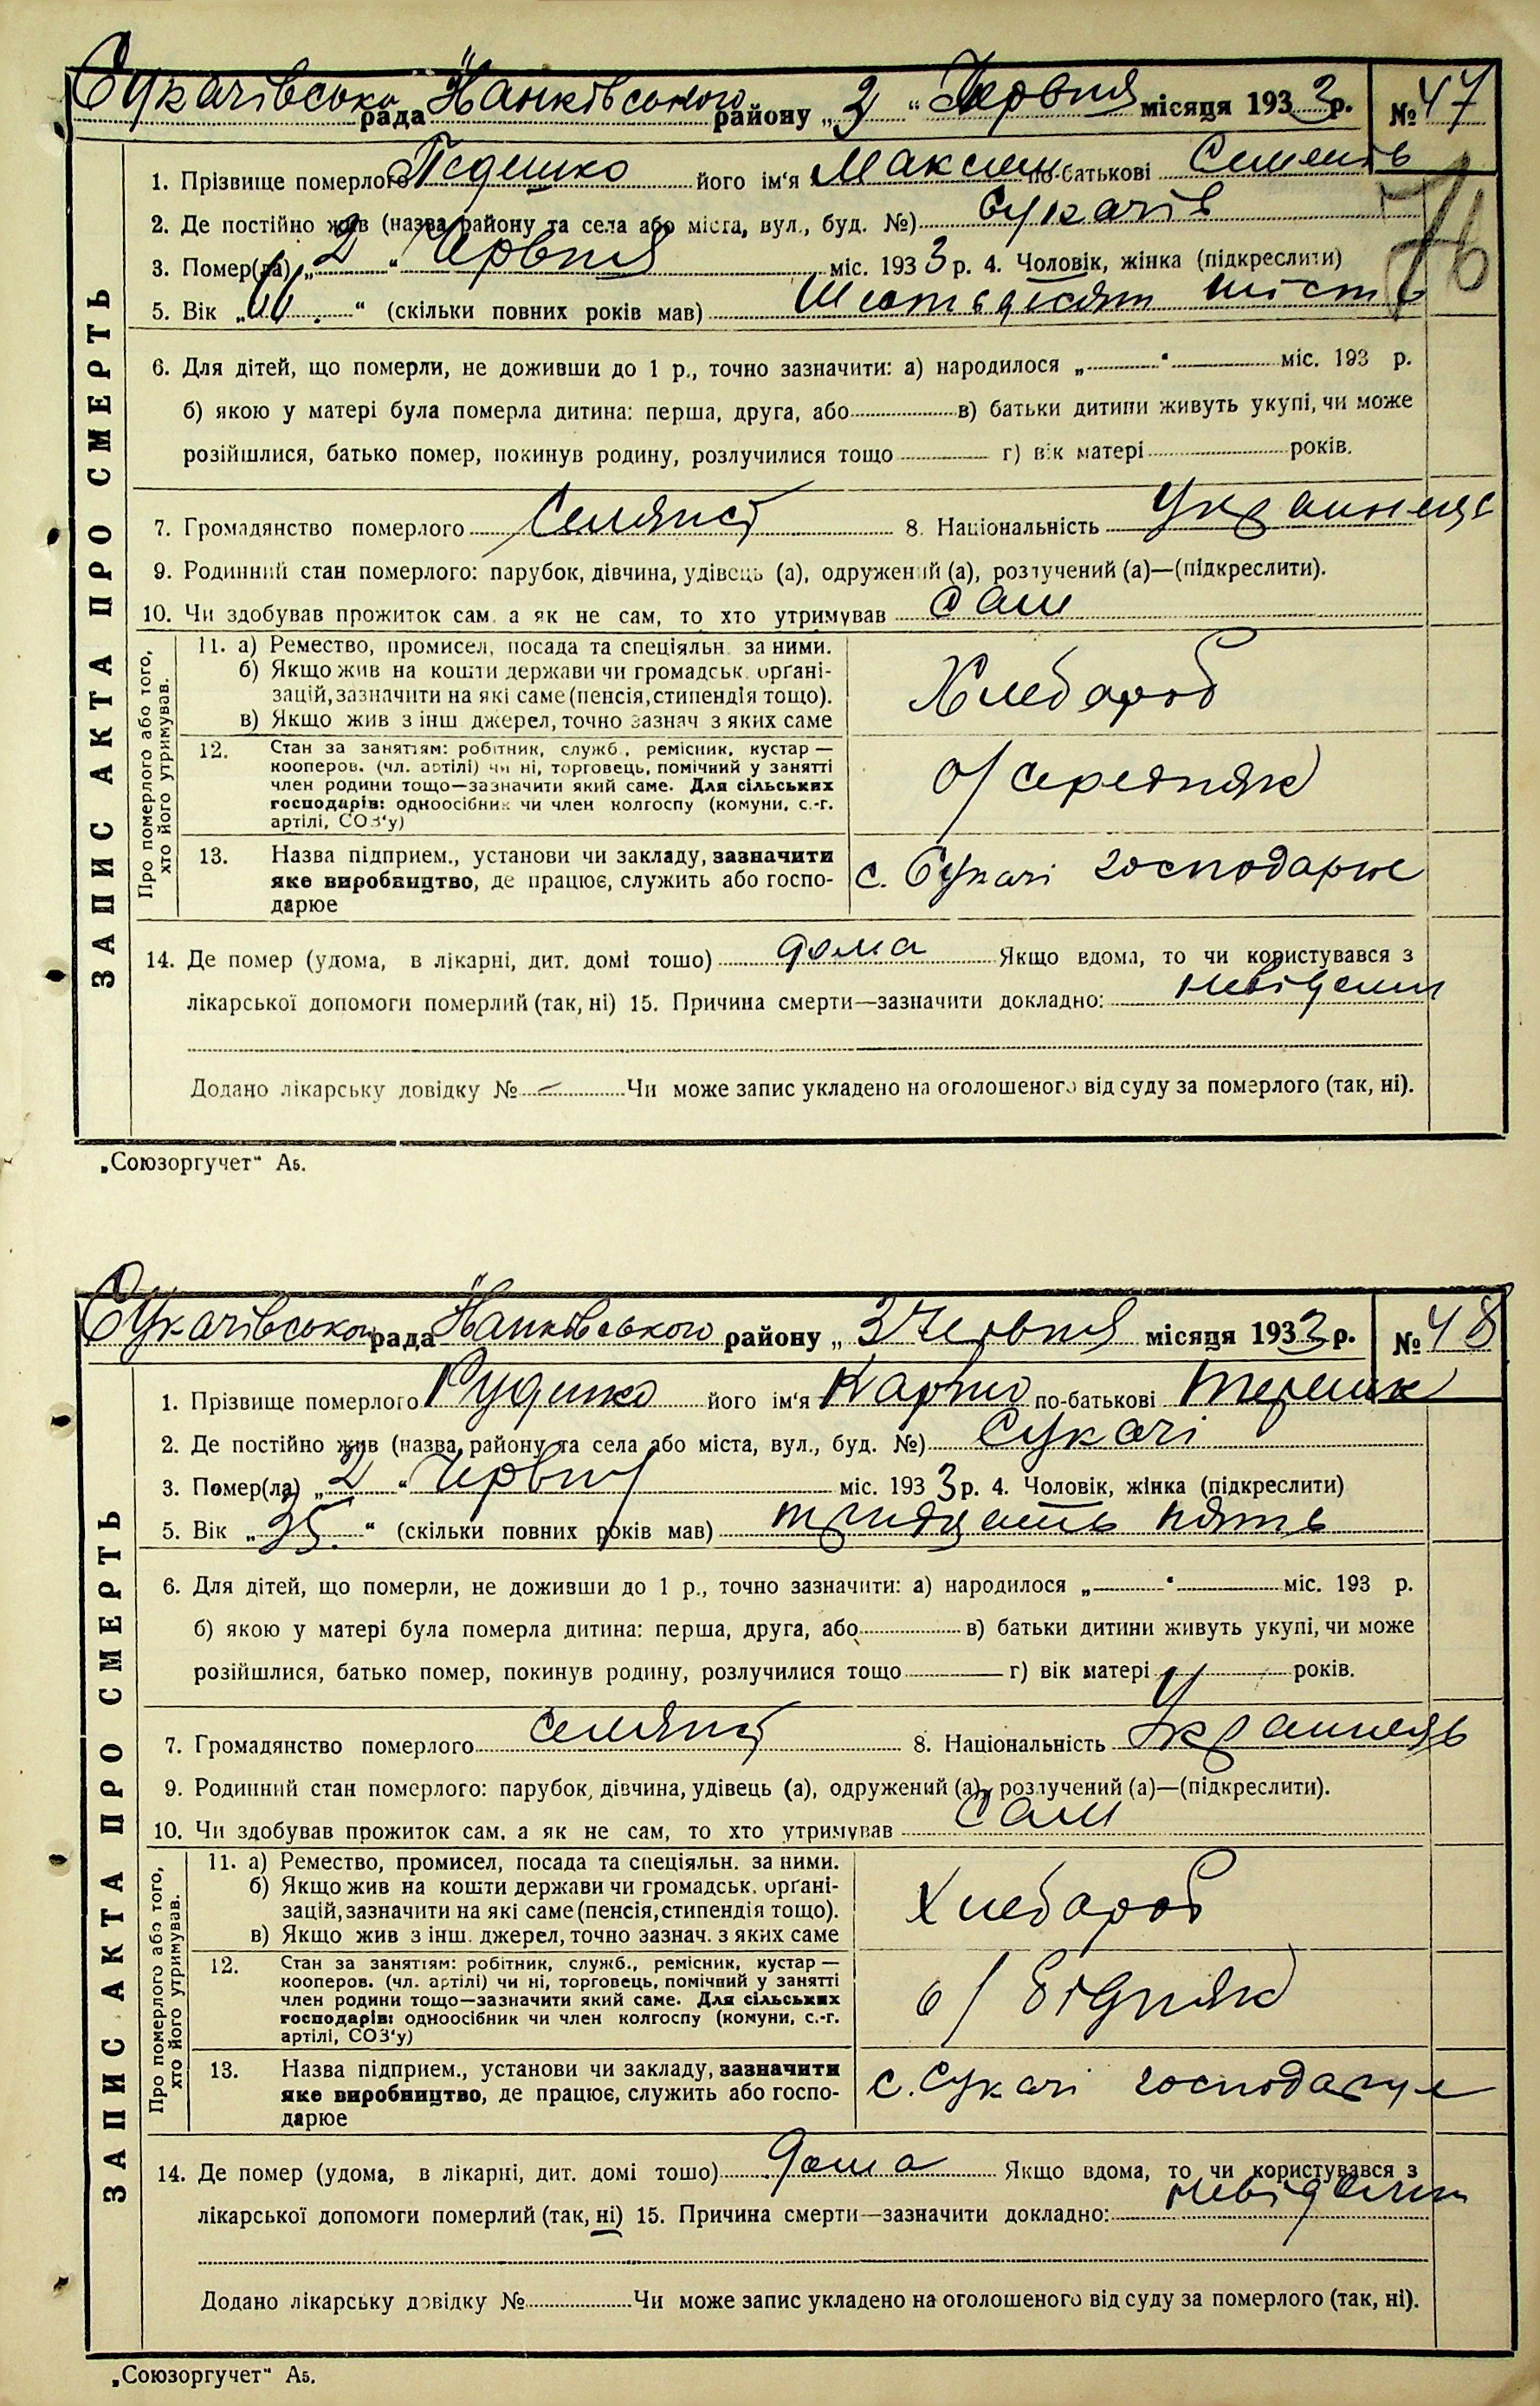 Сукачівсько рада Іванківського району „2“ Червня місяця 1933 р. № 47
1. Прізвище померлого Педешко його ім'я Максим по-батькові Семенів
2. Де постійно жив (назва району та села або міста, вул., буд. №) Сукачів
3. Помер(ла) „2“ Червня міс. 1933 р. 4. Чоловік, жінка (підкреслити)
76
5. Вік „ “ (скільки повних років мав) Шістьдесят шість
6. Для дітей, що померли, не доживши до 1 р., точно зазначити: а) народилося „ “ міс. 193 р.
б) якою у матері була померла дитина: перша, друга, або в) батьки дитини живуть укупі, чи може
розійшлися, батько помер, покинув родину, розлучилися тощо г) вік матері років.
7. Громадянство померлого 8. Національність Украинець
9. Родинний стан померлого: парубок, дівчина, удівець (а), одружений (а), розлучений (а)—(підкреслити).
10. Чи здобував прожиток сам, а як не сам, то хто утримував сам
ЗАПИС АКТА ПРО СМЕРТЬ
Про померлого або того, хто його утримував.
11. а) Ремество, промисел, посада та спеціяльн. за ними.
б) Якщо жив на кошти держави чи громадськ. орґані-
зацій, зазначити на які саме (пенсія, стипендія тощо).
в) Якщо жив з інш джерел, точно зазнач з яких саме
Хлебароб
12. Стан за заняттям: робітник, служб., ремісник, кустар —
кооперов. (чл. артілі) чи ні, торговець, помічний у занятті
член родини тощо—зазначити який саме. Для сільських
господарів: одноосібник чи член колгоспу (комуни, с.-г.
артілі, СОЗ'у)
о/середняк
13. Назва підприєм., установи чи закладу, зазначити
яке виробництво, де працює, служить або госпо-
дарює
с. Сукачі господарює
14. Де помер (удома, в лікарні, дит. домі тощо) дома Якщо вдома, то чи користувався з
лікарської допомоги померлий (так, ні) 15. Причина смерти—зазначити докладно:
Додано лікарську довідку № — Чи може запис укладено на оголошеного від суду за померлого (так, ні).
„Союзоргучет“ А5.
Сукачівсько рада Іванківського району „3 Червня місяця 1933 р. № 48
1. Прізвище померлого Руденко його ім'я Карпо по-батькові
2. Де постійно жив (назва району та села або міста, вул., буд. №) Сукачі
3. Помер(ла) „2“ Червня міс. 1933 р. 4. Чоловік, жінка (підкреслити)
5. Вік „35“ (скільки повних років мав) тридцать пять
6. Для дітей, що померли, не доживши до 1 р., точно зазначити: а) народилося „ “ міс. 193 р.
б) якою у матері була померла дитина: перша, друга, або в) батьки дитини живуть укупі, чи може
розійшлися, батько помер, покинув родину, розлучилися тощо г) вік матері років.
7. Громадянство померлого 8. Національність Украинець
9. Родинний стан померлого: парубок, дівчина, удівець (а), одружений (а), розлучений (а)—(підкреслити).
10. Чи здобував прожиток сам, а як не сам, то хто утримував сам
ЗАПИС АКТА ПРО СМЕРТЬ
Про померлого або того, хто його утримував.
11. а) Ремество, промисел, посада та спеціяльн. за ними.
б) Якщо жив на кошти держави чи громадськ. орґані-
зацій, зазначити на які саме (пенсія, стипендія тощо).
в) Якщо жив з інш. джерел, точно зазнач. з яких саме
Хлебароб
12. Стан за заняттям: робітник, служб., ремісник, кустар —
кооперов. (чл. артілі) чи ні, торговець, помічний у занятті
член родини тощо—зазначити який саме. Для сільських
господарів: одноосібник чи член колгоспу (комуни, с.-г.
артілі, СОЗ'у)
о/бідняк
13. Назва підприєм., установи чи закладу, зазначити
яке виробництво, де працює, служить або госпо-
дарює
с. Сукачі господарує
14. Де помер (удома, в лікарні, дит. домі тощо) дома Якщо вдома, то чи користувався з
лікарської допомоги померлий (так, ні) 15. Причина смерти—зазначити докладно:
Додано лікарську довідку № Чи може запис укладено на оголошеного від суду за померлого (так, ні).
„Союзоргучет“ А5.